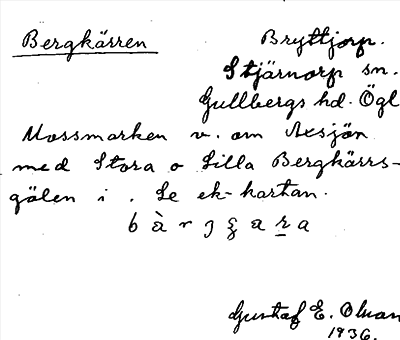 Bergkärren
Bryttjorp.
Stjärnorp sn.
Gullbergs hd. Ögl
Mossmarken v. om Axsjön
med Stora o Lilla Bergkärrs-
gölen i . Se ek-kartan.
Gustaf E. Olson
1936.